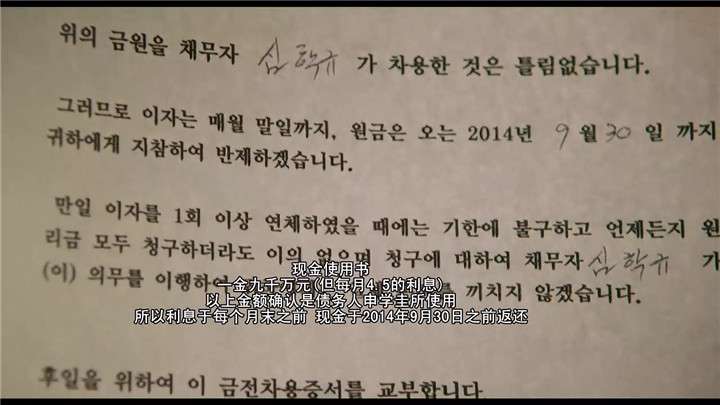 위의 금원을 채무자 심학규 가 차용한 것은 틀림없습니다.
그러므로 이자는 매월 말일까지, 원금은 오는 2014년 9 월 30 일 까지
귀하에게 지참하여 반제하겠습니다.
만일 이자를 1회 이상 연체하였을 때에는 기한에 불구하고 언제든지 원
리금 모두 청구하더라도 이의 없으며 청구에 대하여 채무자 심학규 가
(이) 의무를 이행하 를 끼치지 않겠습니다.
现金使用书
一金九千万元(但每月4.5的利息)
以上金额确认是债务人申学圭所使用
所以利息于每个月末之前 现金于2014年9月30日之前返还
후일을 위하여 이 금전차용증서를 교부합니다